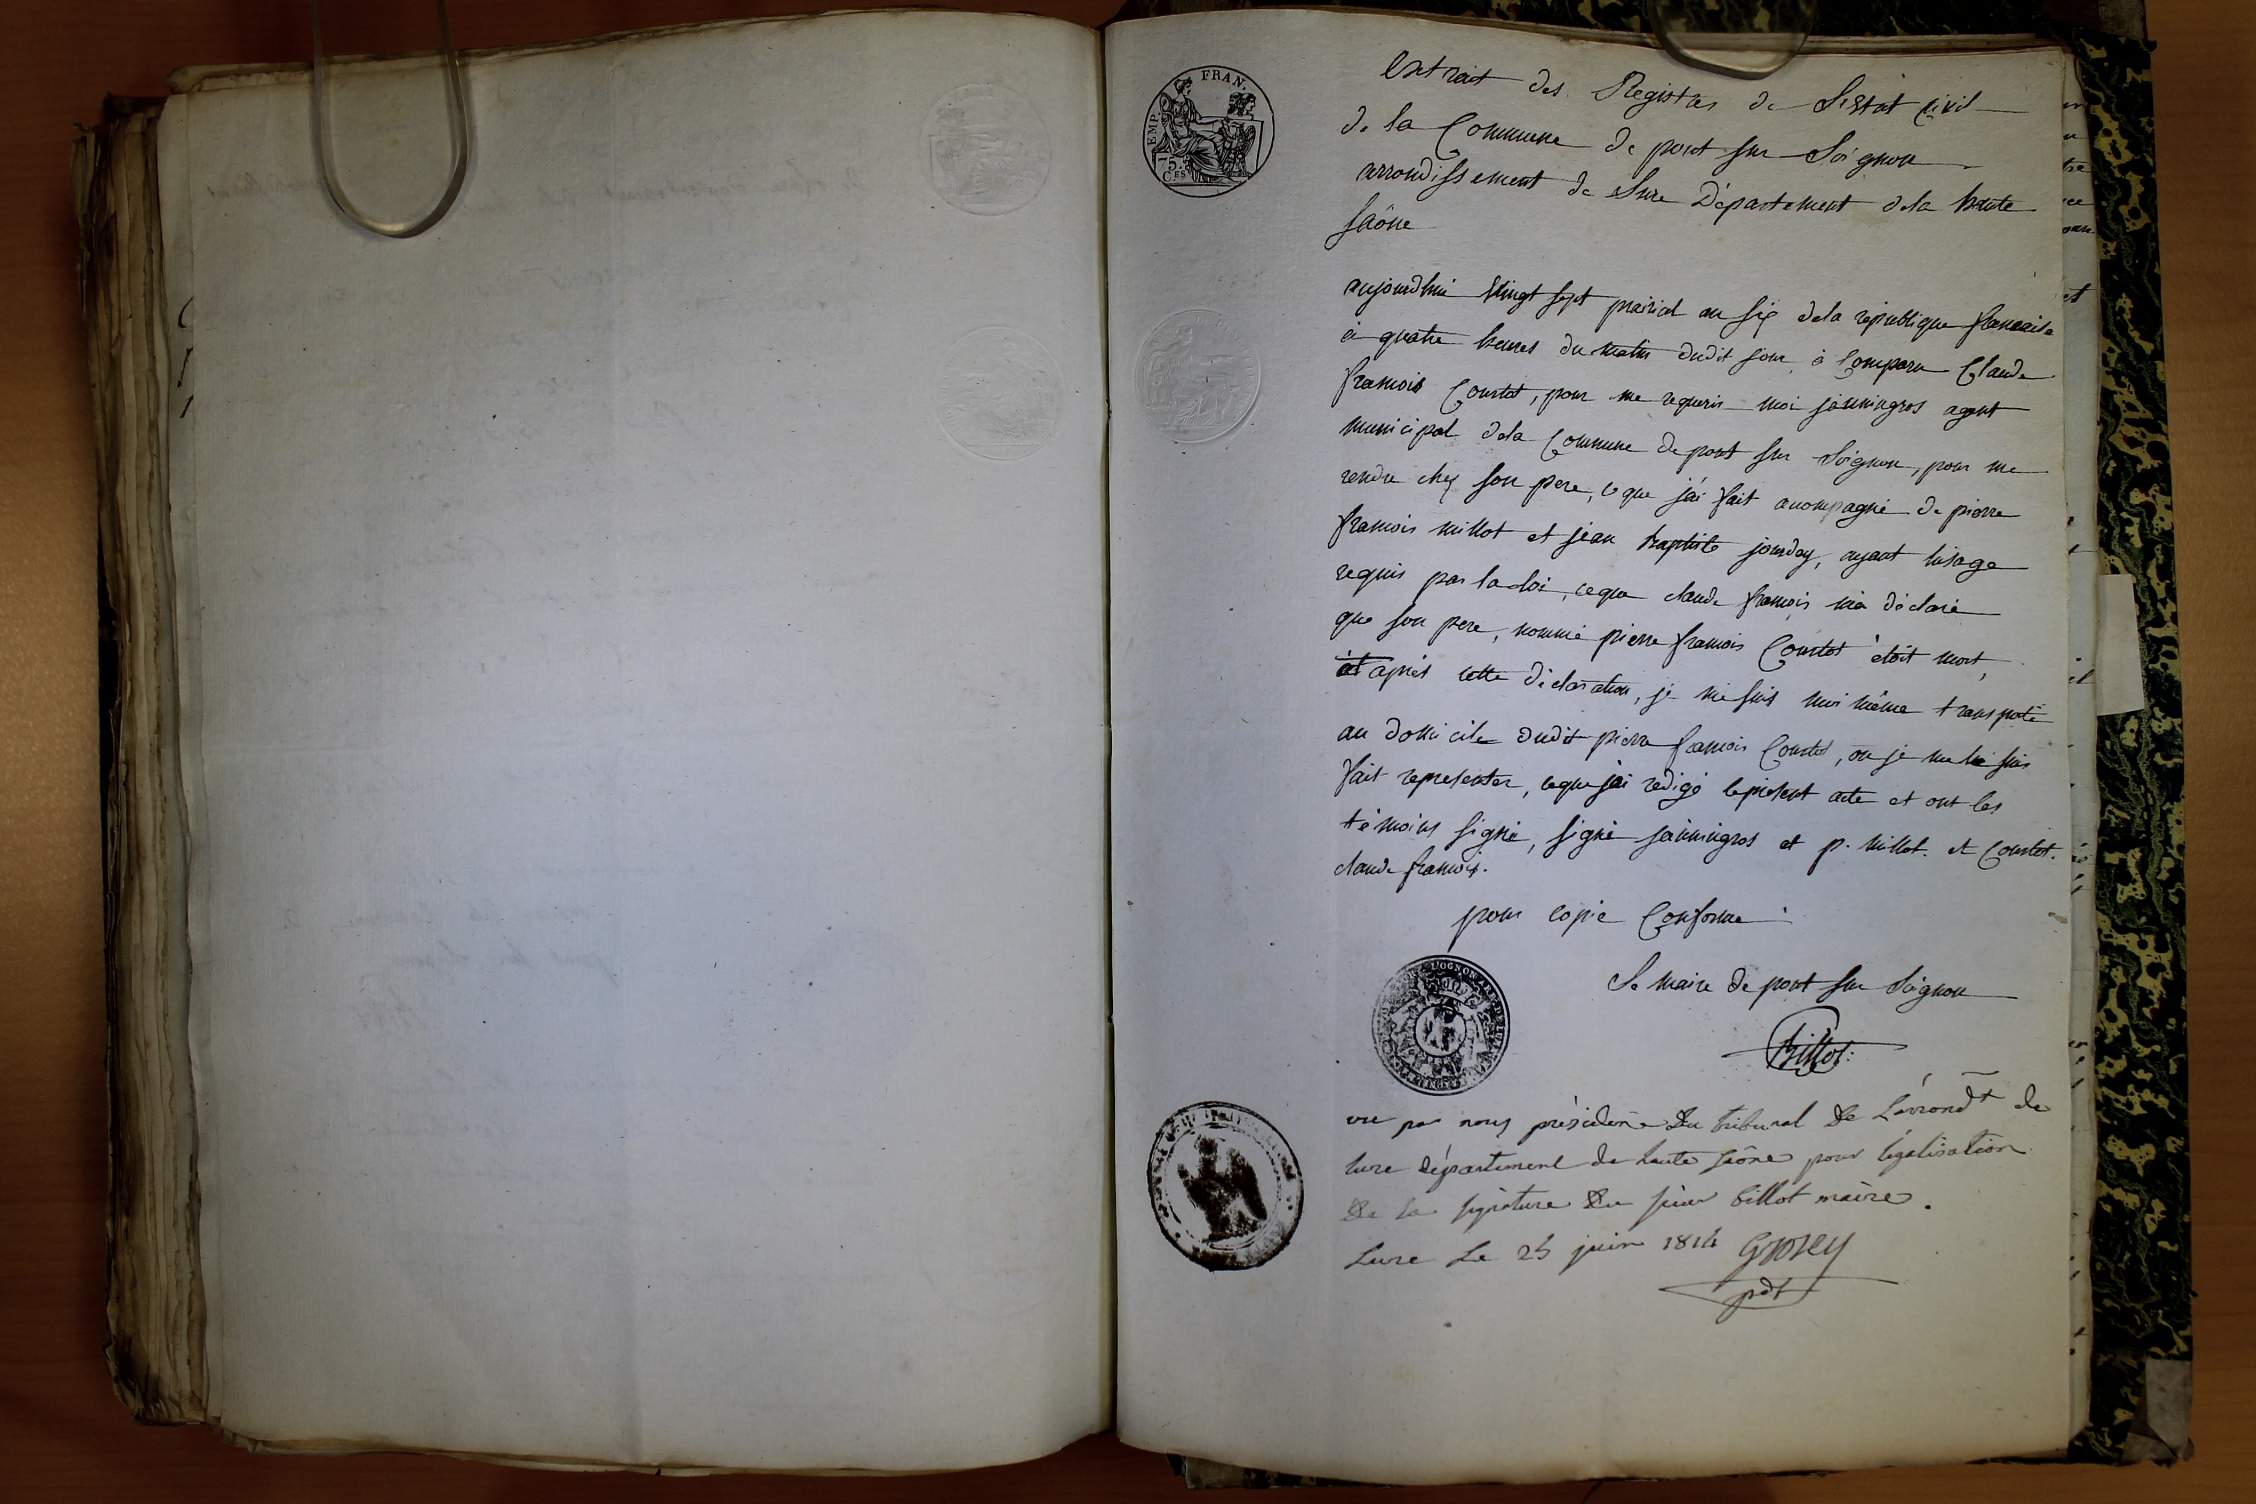 EMP. FRAN.
75
C.ES
Extrait des Registres de L'Etat Civil
de la Commune de pont sur Loignon
arrondissement de Lure Département dela haute
Saône
aujourdhui Vingt sept prairial an six dela republique francaise
à quatre heures du matin dudit jour, à Comparu Claude
francois Courtot, pour me requerir moi jeanningros agent
municipal dela Commune de pont sur Loignon, pour me
rendre chez son pere, ce que j'ai fait acompagné de pierre
francois millot et jean baptiste jourdoy, ayant l'usage
requis par la loi, ceque claude francois m'a déclaré
que son pere, nommé pierre francois Courtot étoit mort,
et après cette déclaration, je me suis moi même transporté
au domicile dudit pierre francois Courtot, ou je me le suis
fait representer, ceque j'ai redigé le présent acte et ont les
témoins signé, signé jeanningros et p. millot. et Courtot.
claude francois.
pour copie Conforme
Le maire de pont sur Loignon
Billot
L'OGNON
vu par nous président du tribunal de L'arrondt de
Lure département de haute saône pour légalisation
de la signature du sieur billot maire.
Lure Le 25 juin 1814
pdt